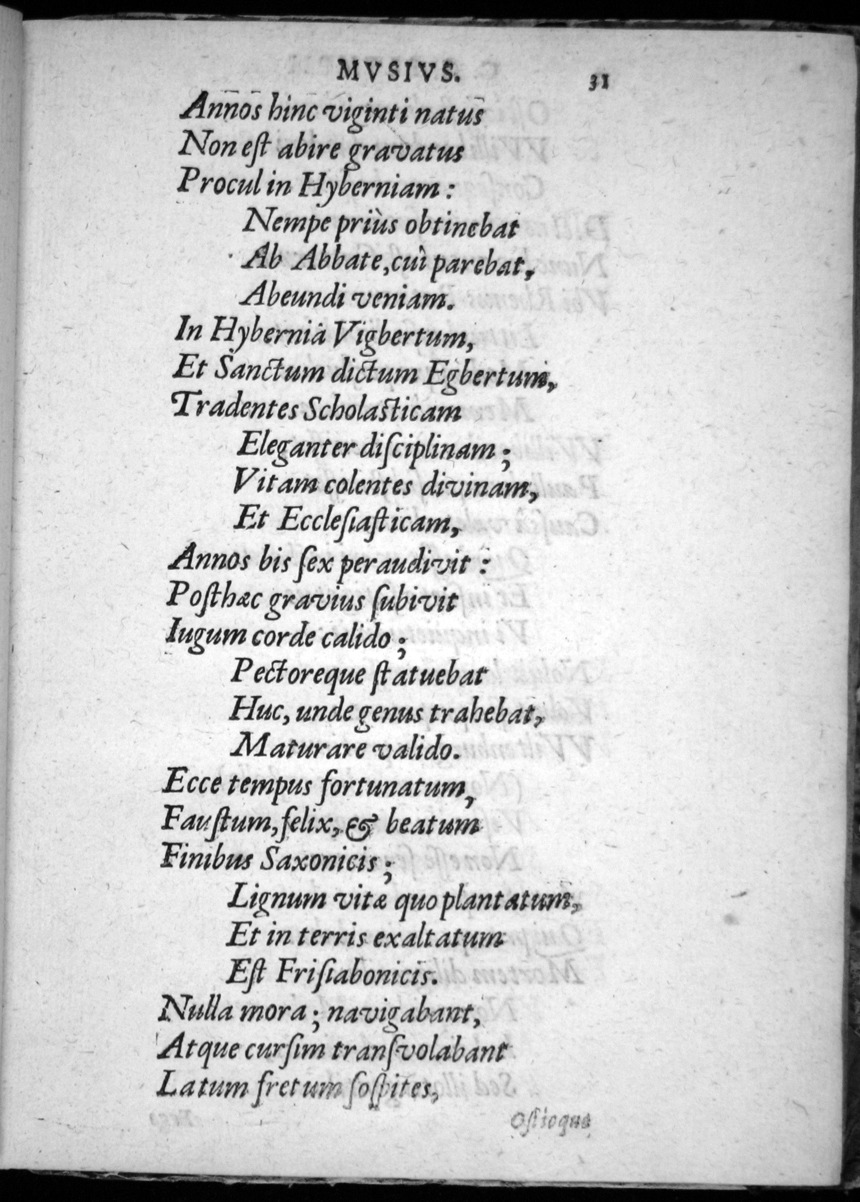 MVSIVS. 31
Annos hinc viginti natus
Non eſt abire gravatus
Procul in Hyberniam :
Nempe priùs obtinebat
Ab Abbate, cuì parebat,
Abeundi veniam.
In Hyberniâ Vigbertum,
Et Sanctum dictum Egbertum,
Tradentes Scholaſticam
Eleganter diſciplinam ;
Vitam colentes divinam,
Et Eccleſiaſticam,
Annos bis ſex peraudivit :
Poſthæc gravius ſubivit
Iugum corde calido ;
Pectoreque ſtatuebat
Huc, unde genus trahebat,
Maturare valido.
Ecce tempus fortunatum,
Fauſtum, felix, & beatum
Finibus Saxonicis ;
Lignum vitæ quo plantatum,
Et in terris exaltatum
Eſt Friſiabonicis.
Nulla mora ; navigabant,
Atque curſim tranſvolabant
Latum fretum ſoſpites,
Oſtioque